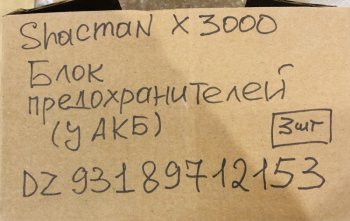 Shacman X 3000
Блок
предохранителей
(у АКБ)
3шт
DZ 93189712153